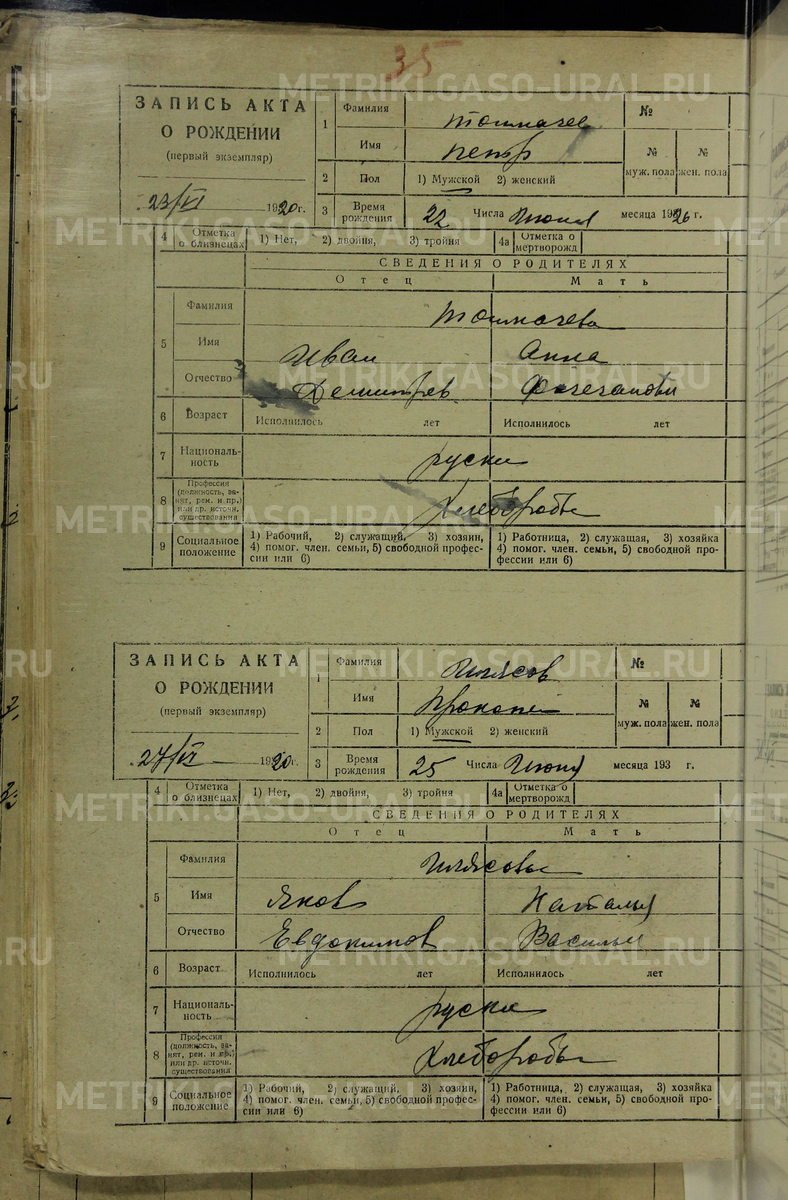 35
METRIKI.GASO-URAL.RU
ЗАПИСЬ АКТА
О РОЖДЕНИИ
(первый экземпляр)
23/VI 1920г.
1 Фамилия Толмачев №
Имя Петр № муж. пола № жен. пола
2 Пол 1) Мужской 2) женский
3 Время рождения 22 Числа Июня месяца 1926 г.
4 Отметка о близнецах 1) Нет, 2) двойня, 3) тройня 4а Отметка о мертворожд
СВЕДЕНИЯ О РОДИТЕЛЯХ
Отец Мать
5 Фамилия Толмачевы
Имя Иван Анна
Отчество Дмитрев
6 Возраст Исполнилось лет Исполнилось лет
7 Националь-
ность руски
8 Профессия
(должность, за-
нят, рем. и пр.)
или др. источн.
существования Хлеборобы
9 Социальное положение 1) Рабочий, 2) служащий, 3) хозяин, 1) Работница, 2) служащая, 3) хозяйка
4) помог. член. семьи, 5) свободной профес- 4) помог. член. семьи, 5) свободной про-
сии или 6) фессии или 6)
ЗАПИСЬ АКТА
О РОЖДЕНИИ
(первый экземпляр)
27/VI 1920г.
1 Фамилия Илясов №
Имя Прокопе № муж. пола № жен. пола
2 Пол 1) Мужской 2) женский
3 Время рождения 25 Числа Июня месяца 193 г.
4 Отметка о близнецах 1) Нет, 2) двойня, 3) тройня 4а Отметка о мертворожд
СВЕДЕНИЯ О РОДИТЕЛЯХ
Отец Мать
5 Фамилия Илясовы
Имя Яков Наталья
Отчество Евдокимов Васильи
6 Возраст Исполнилось лет Исполнилось лет
7 Националь-
ность руски
8 Профессия
(должность, за-
нят, рем. и пр.)
или др. источн.
существования Хлеборобы
9 Социальное положение 1) Рабочий, 2) служащий, 3) хозяин, 1) Работница, 2) служащая, 3) хозяйка
4) помог. член. семьи, 5) свободной профес- 4) помог. член. семьи, 5) свободной про-
сии или 6) фессии или 6)